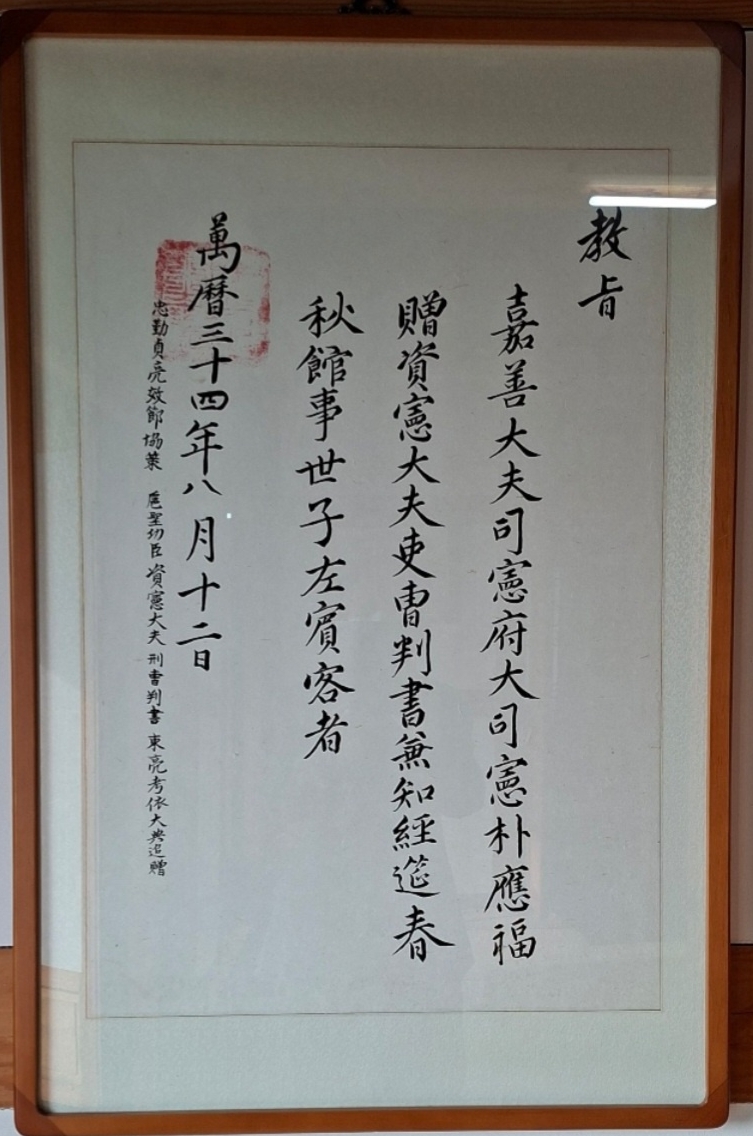 教旨
嘉善大夫司憲府大司憲朴應福
贈資憲大夫吏曹判書兼知經筵春
秋館事世子左賓客者
萬曆三十四年八月十二日
忠勤貞亮效節協策 扈聖功臣 資憲大夫 刑曹判書 東亮考依大典追贈